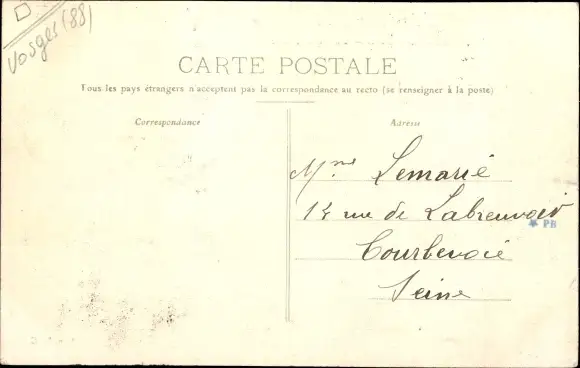 Vosges (88)
CARTE POSTALE
Tous les pays étrangers n'acceptent pas la correspondance au recto (se renseigner à la poste)
Correspondance
Adresse
Mme Lemarié
rue de Labreuvoir
* PB
Courbevoie
Seine